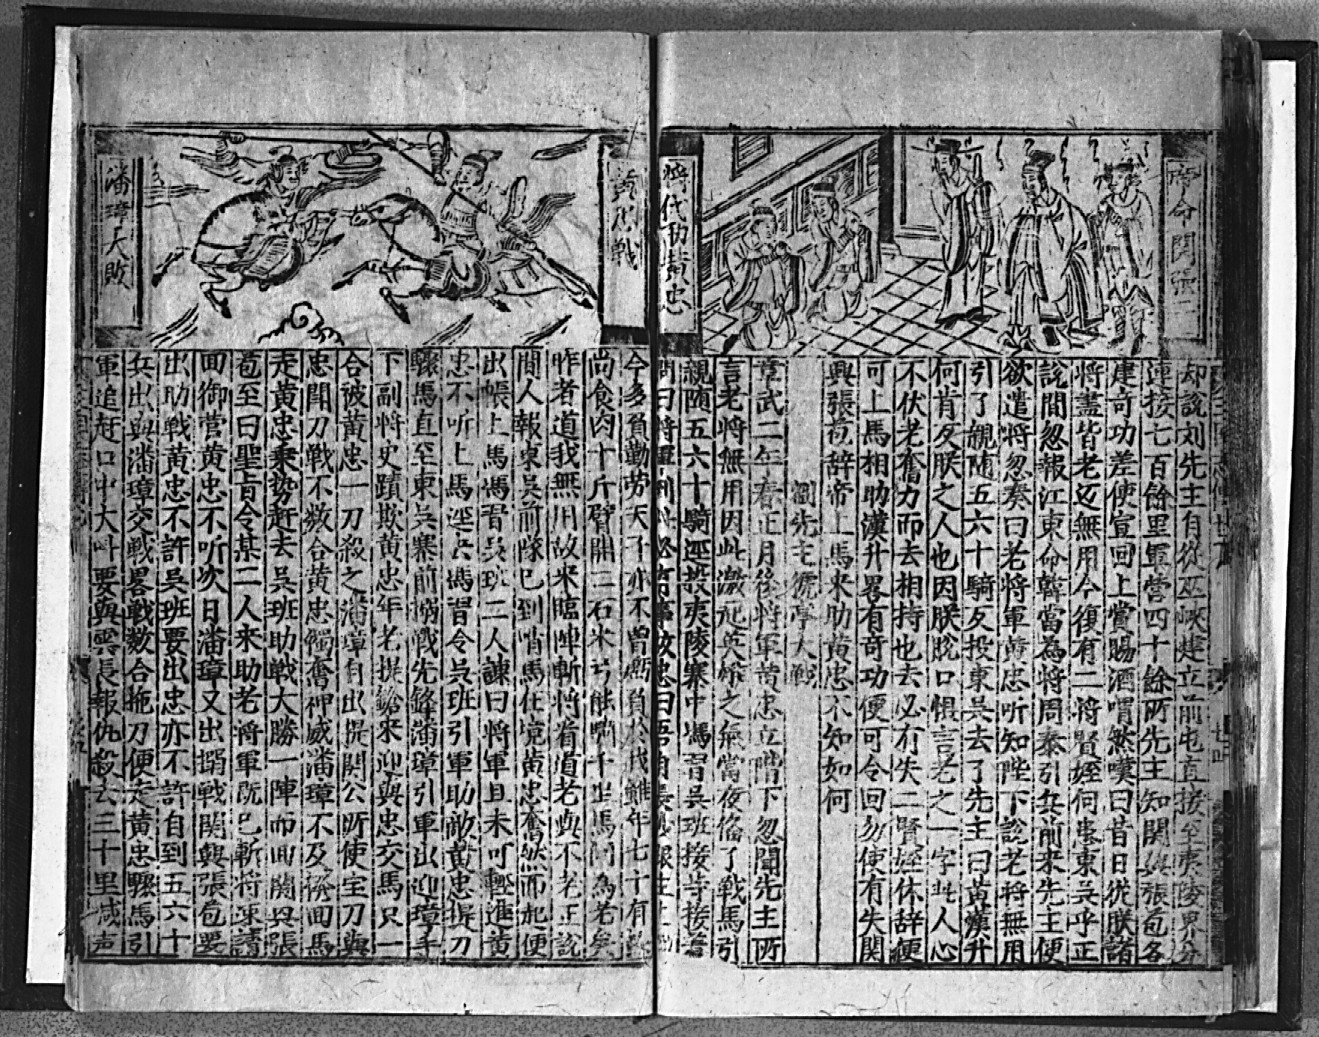 帝命関張二
将代助黄忠
却說刘先主自從巫峽建立前屯直接至夷陵界分
連接七百餘里軍營四十餘所先主知関興張苞各
建奇功差使宣回上賞賜酒喟然嘆曰昔日從朕諸
將盡皆老迈無用今復有二將賢姪何患東吳乎正
說間忽報江東命韓當為將周泰引兵前來先主便
欲遣将忽奏曰老將軍黄忠听知陛下說老将無用
引了親随五六十騎反投東吳去了先主曰黄漢升
何肯反朕之人也因朕脫口悞言老之一字此人心
不伏老奮力而去相持也去必有失二賢姪休辞便
可上馬相助漢升畧有奇功便可令回勿使有失関
興張苞辞帝上馬來助黄忠不知如何
劉先主猇亭大戰
章武二年春正月後將軍黄忠立階下忽聞先主所
言老將無用因此激起英雄之氣當夜俻了戰馬引
親随五六十騎逕投夷陵寨中馮習吳班接寺接着
問曰将軍此必有事故忠曰吾自長沙跟主上到
黄忠戰
潘璋大敗
今多負勤劳天子亦不曾虧負於我雖年七十有
尚食肉十斤臂開三石米弓能騎千里馬何為老矣
昨者道我無用故來臨陣斬将看道老與不老正說
間人報東吳前隊已到哨馬在境黄忠奮然而起便
出帳上馬馮習吳班二人諫曰將軍且未可輕進黄
忠不听上馬逕去馮習令吳班引軍助敵黄忠提刀
驟馬直至東吳寨前搦戰先鋒潘璋引軍出迎璋手
下副將史蹟欺黄忠年老提鎗來迎與忠交馬只一
合被黄忠一刀殺之潘璋自出提関公所使宝刀與
忠閗刀戰不数合黄忠觸奮神威潘璋不及撥回馬
走黄忠乗势赶去吳班助戰大勝一陣而回関興張
苞至曰聖旨令某二人來助老将軍既已斬将速請
回御营黄忠不听次日潘璋又出搦戰関興張苞要
出助戰黄忠不許吳班要出忠亦不許自到五六十
兵出與潘璋交戰畧戰数合拖刀便走黄忠驟馬引
軍追赶口中大叫要與雲長報仇殺去三十里喊声